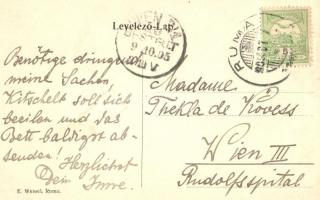 Levelező-Lap.
WIEN
BESTELLT
9. 10. 05
RUMA
Benötige dringend
meine Sachen,
Kitschelt soll sich
beeilen und das
Bett baldigst ab-
senden! Herzlichst
Dein Imre.
Madame
Thekla de Kövess
Wien III
Rudolfsspital
E. Wessel, Ruma.